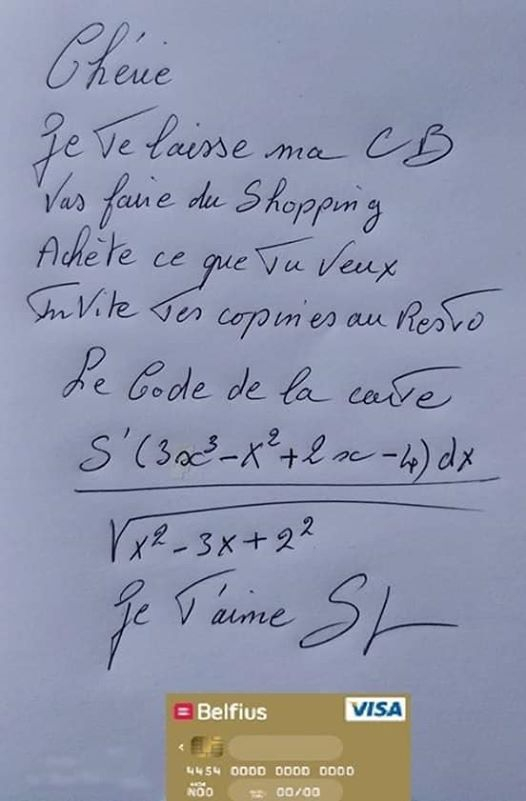 Chérie
Je Te laisse ma CB
Vas faire du Shopping
Achète ce que Tu Veux
InVite Tes copines au Resto
Le Code de la carte
S'(3x³-x²+2x-4)dx
√x²-3x+2²
Je T'aime SL
Belfius
VISA
4454 0000 0000 0000
N00 00/00